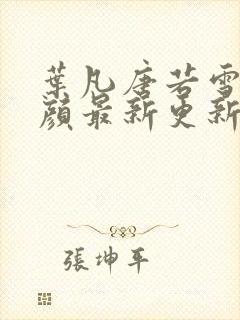 葉凡唐若雪
顏最新更新
張坤平